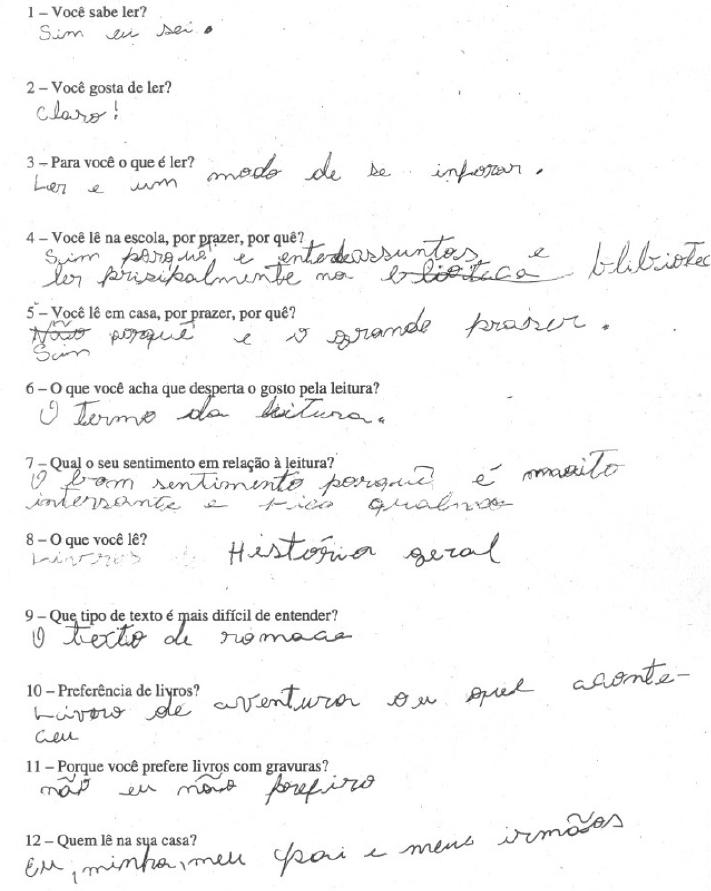 1 – Você sabe ler?
Sim eu sei.
2 – Você gosta de ler?
Claro!
3 – Para você o que é ler?
Ler e um modo de se inforar.
4 – Você lê na escola, por prazer, por quê?
Sim porquê e entede assuntos, e
ler prisipalmente na blibiotec
5 – Você lê em casa, por prazer, por quê?
Não porquê e o grande praser.
Sim
6 – O que você acha que desperta o gosto pela leitura?
O termo da leitura.
7 – Qual o seu sentimento em relação à leitura?
O bom sentimento porquê é muito
intersante e fico
8 – O que você lê?
Livros História geral
9 – Que tipo de texto é mais difícil de entender?
O texto de romace
10 – Preferência de livros?
Livoro de aventura ou quel aconte-
ceu
11 – Porque você prefere livros com gravuras?
não eu não prefiro
12 – Quem lê na sua casa?
Eu, minha, meu pai e meus irmãos